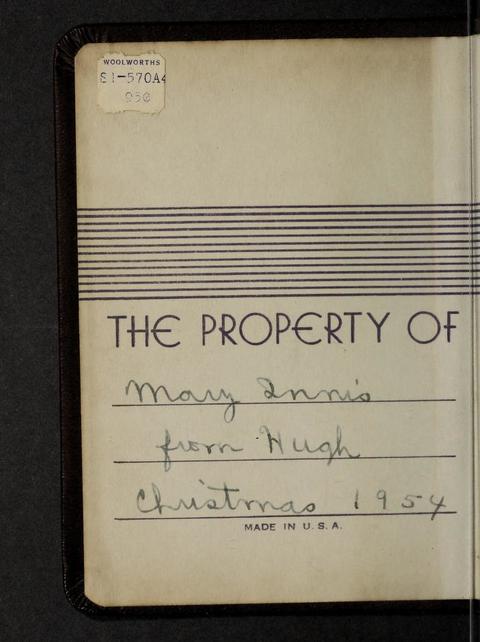 WOOLWORTHS
81-570A4
THE PROPERTY OF
Mary Innis
from Hugh
Christmas 1954
MADE IN U.S.A.